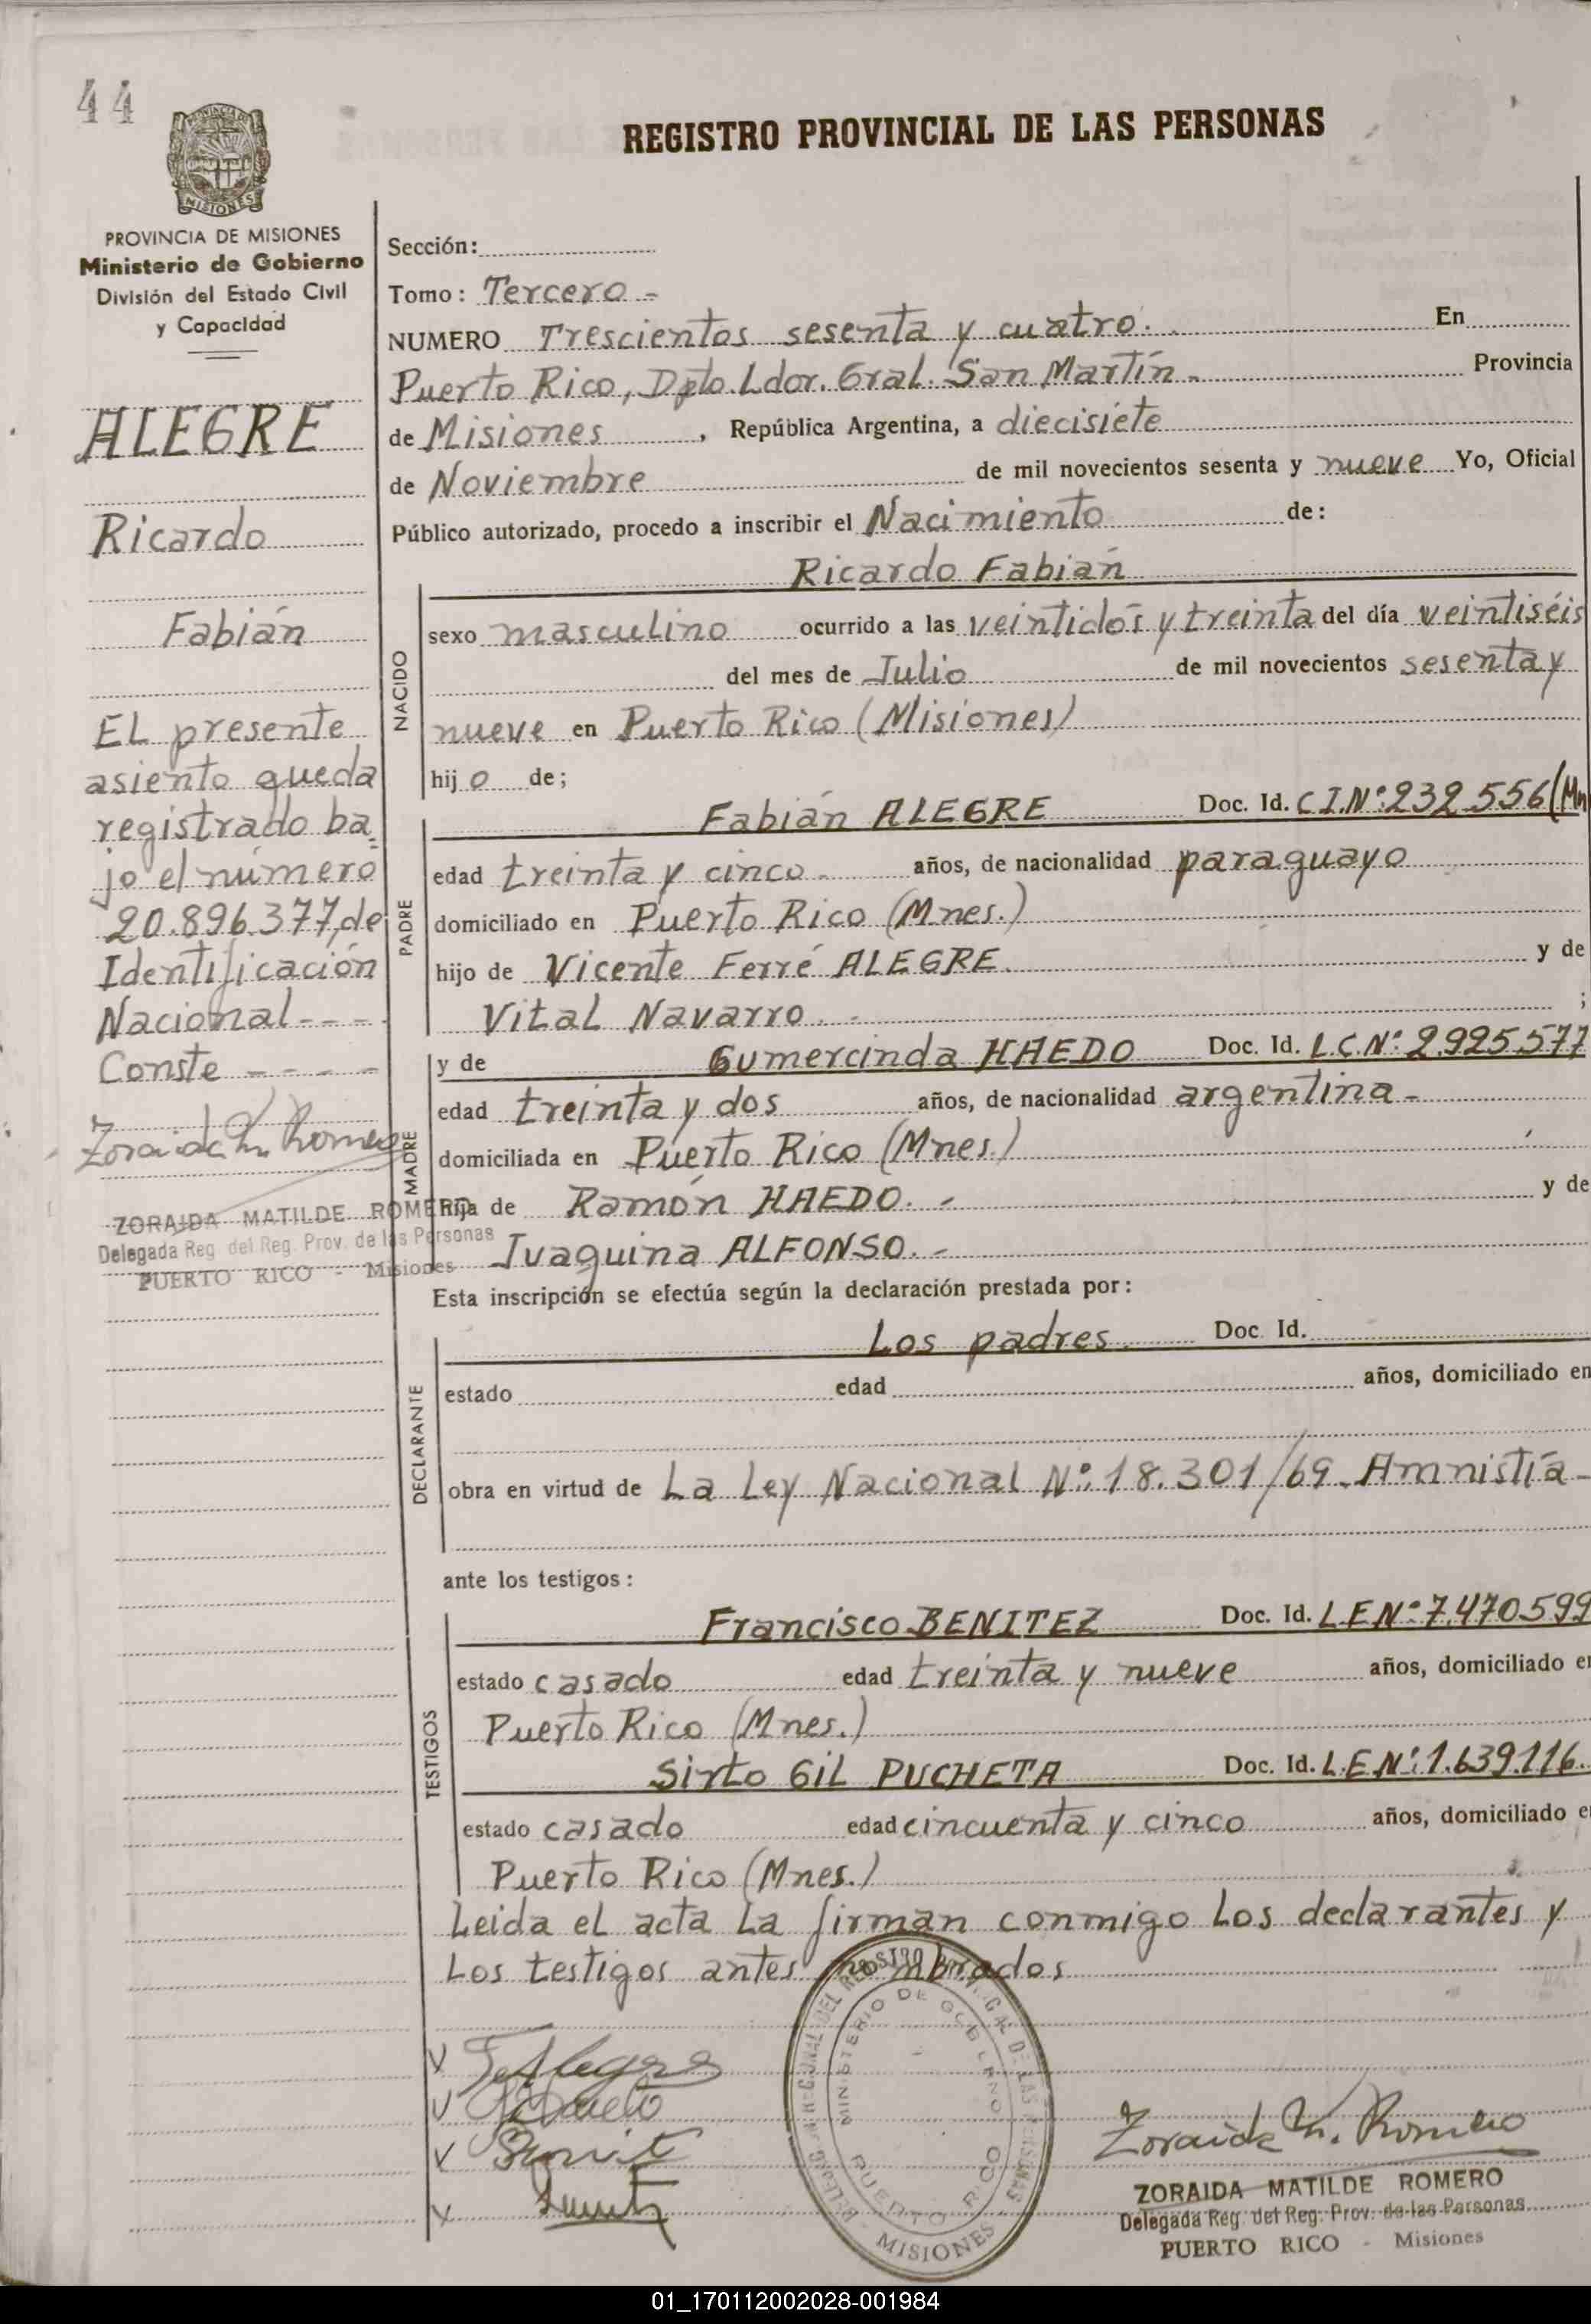 44
REGISTRO PROVINCIAL DE LAS PERSONAS
MISIONES
PROVINCIA DE MISIONES
Ministerio de Gobierno
División del Estado Civil
y Capacidad
ALEGRE
Ricardo
Fabián
EL presente
asiento queda
registrado ba
jo el número
20.896.377, de
Identificación
Nacional - - -
Conste - - - -
Zoraida M. Romero
ZORAIDA MATILDE ROMERO
Delegada Reg. del Reg. Prov. de las Personas
PUERTO RICO - Misiones
Sección:
Tomo: Tercero -
NUMERO Trescientos sesenta y cuatro. En
Puerto Rico, Dpto. Ldor. Gral. San Martín - Provincia
de Misiones, República Argentina, a diecisiete
de Noviembre de mil novecientos sesenta y nueve Yo, Oficial
Público autorizado, procedo a inscribir el Nacimiento de:
Ricardo Fabián
NACIDO
sexo masculino ocurrido a las veintidós y treinta del día veintiséis
del mes de Julio de mil novecientos sesenta y
nueve en Puerto Rico (Misiones)
hij o de;
Fabián ALEGRE Doc. Id. C.I.Nº: 232.556 (Mn
PADRE
edad treinta y cinco - años, de nacionalidad paraguayo
domiciliado en Puerto Rico (Mnes.)
hijo de Vicente Ferré ALEGRE. y de
Vital Navarro. - ;
y de Gumercinda HAEDO Doc. Id. L.C.Nº: 2.925.577
MADRE
edad treinta y dos años, de nacionalidad argentina -
domiciliada en Puerto Rico (Mnes.)
hija de Ramón HAEDO. - y de
Juaquina ALFONSO. -
Esta inscripción se efectúa según la declaración prestada por:
Los padres. Doc. Id.
DECLARANTE
estado edad años, domiciliado en
obra en virtud de La Ley Nacional Nº: 18.301/69. Amnistía -
ante los testigos:
Francisco BENITEZ Doc. Id. L.E Nº: 7.470.599
TESTIGOS
estado casado edad treinta y nueve años, domiciliado en
Puerto Rico (Mnes.)
Sixto Gil PUCHETA Doc. Id. L.E Nº: 1.639.116.
estado casado edad cincuenta y cinco años, domiciliado e
Puerto Rico (Mnes.)
Leida el acta La firman conmigo Los declarantes y
Los testigos antes nombrados
MINISTERIO DE GOBIERNO
PUERTO RICO
MISIONES
Zoraida M. Romero
ZORAIDA MATILDE ROMERO
Delegada Reg. del Reg. Prov. de las Personas
PUERTO RICO - Misiones
01_170112002028-001984